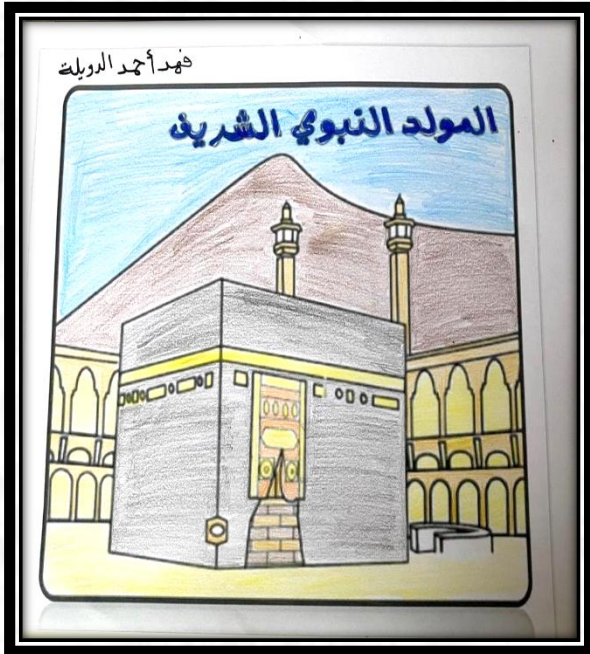 فهد أحمد الدويلة
المولد النبوي الشريف